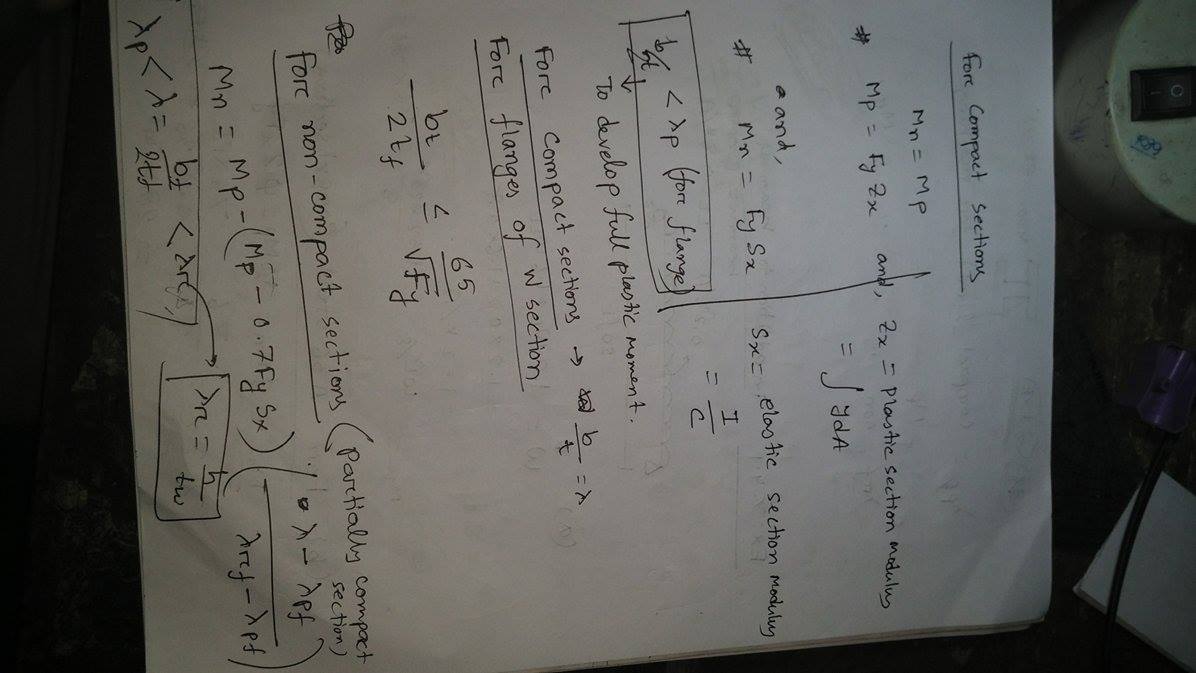 Forc Compact sections
Mn = Mp
# Mp = Fy Zx and, Zx = Plastic section modulus
= ∫ydA
and,
# Mn = Fy Sx Sx = elastic section modulus
= I/C
b/t < λp (forc flange)
To develop full plastic moment.
Forc compact sections → b/t = λ
Forc flanges of W section
bf/2tf ≤ 65/√Fy
Forc non-compact sections (parctially compact section)
Mn = Mp - (Mp - 0.7Fy Sx) (λ - λpf / λrcf - λpf)
λp < λ = bf/2tf < λrc, λrc = h/tw